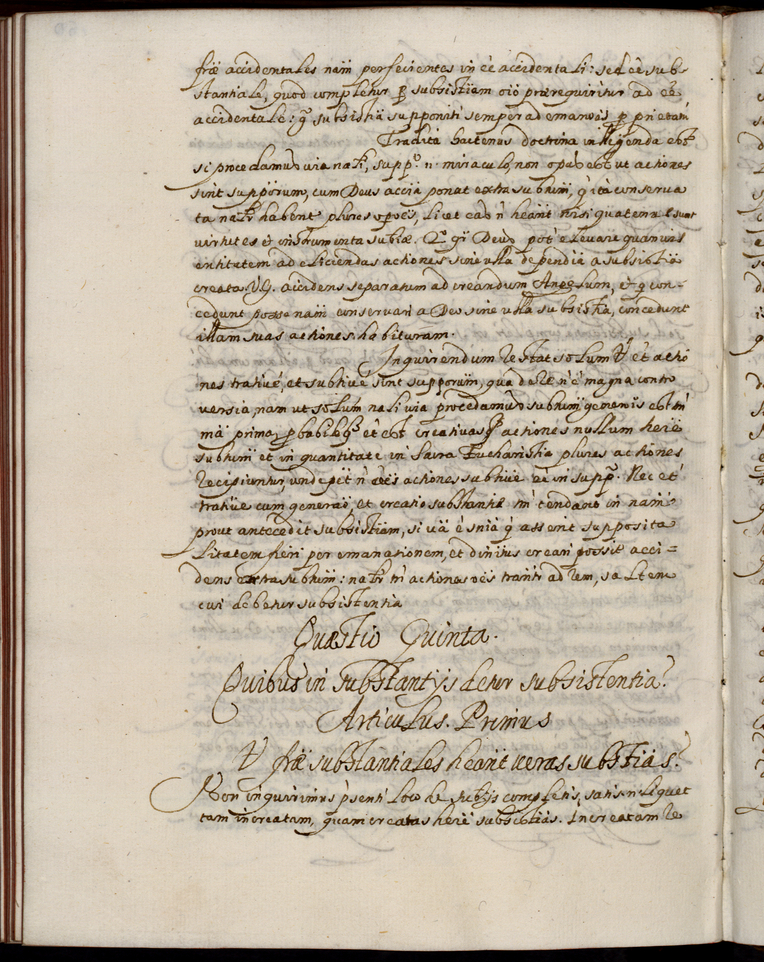 fræ accidentales nam perficientes in ee accidentali: sed ee sub-
stantiale, quod completur p subsistiam oiò prærequiritur ad ee
accidentale: q subsistia suppositi semper ad emanatis p prietati
Tradita hactenus doctrina intelligenda est
si procedamus via natli, supp n miraculo, non opus est ut actiones
sint supporum, cum Deus accia ponat extra subium, q ita conserva
ta natlr habent plures opoes, licet eas n heant nisi quatenus sunt
virtutes et instrumenta subiæ. Deus pot elevare quamvis
entitatem ad eliciendas actiones sine ulla dependia a subsistia
creata. V.G. accidens separatum ad creandum Angelum, et q con-
cedunt posse nam conservari a Deo sine ulla subsistia, concedunt
illam suas actiones habituram.
Inquirendum restat solum V et actio
nes trative, et subtive sint supporum, qua de re n e magna contro
versia, nam ut solum nali via procedamus subium gnonis est m
ma prima, probabile et est creativas actiones nullum here
subium et in quantitate in Sacra Eucharistia plures actiones
recipiuntur, unde n oes actiones subtive in supp. Nec et
trative cum generao, et creatio substantiæ tendant in nam
prout antecedit subsistiam, si va e snia q asserit supposita
litatem fieri per emanationem, et divinus creari possit acci-
dens extra subium: natlr tn actiones oes tranti ad rem, saltem
cui debetur subsistentia
Quæstio Quinta.
Quibus in substantijs detur subsistentia?
Articulus. Primus
V fræ substantiales heant veras subsistias?
Non inquirimus psenti loco de subtijs completis, satis n liquet
tam increatam, quam creatas here subsistias. Increatam re